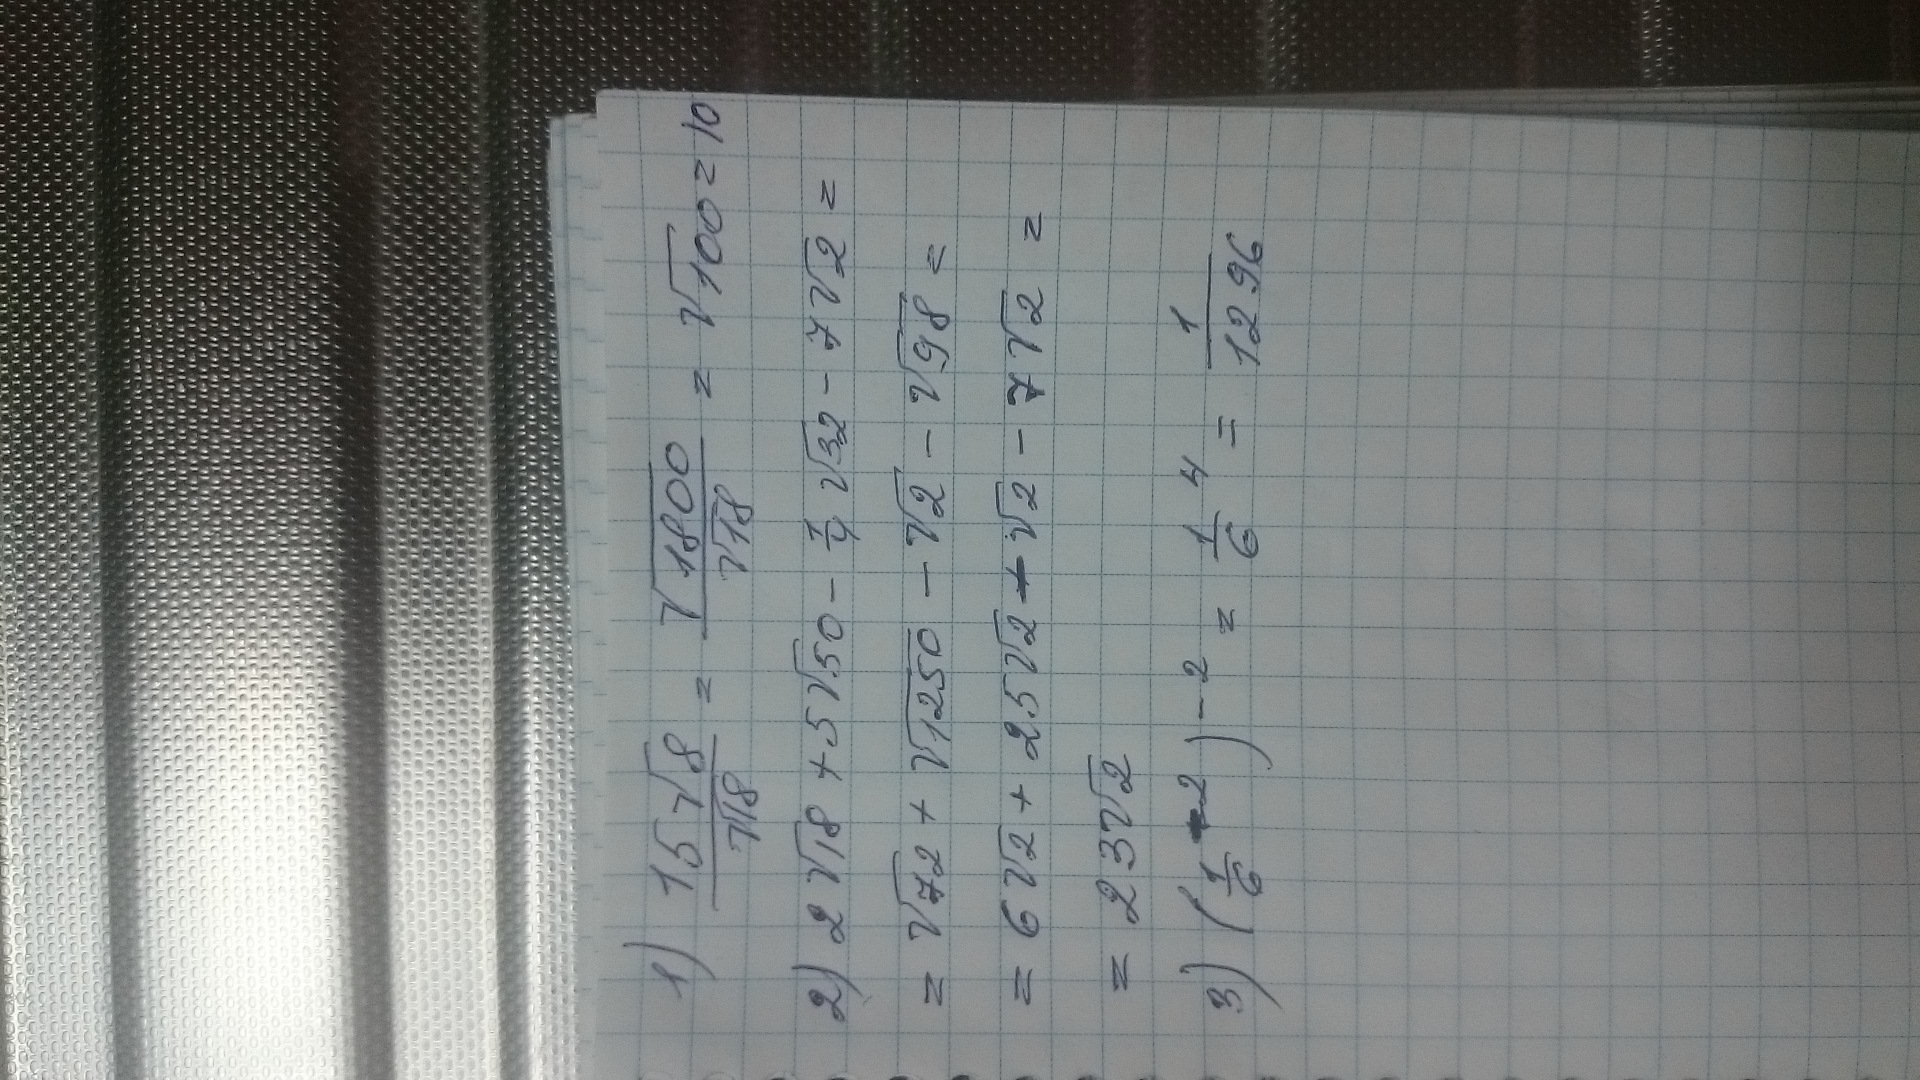 1) 15√8/√18 = √1800/√18 = √100 = 10
2) 2√18 + 5√50 - 1/4 √32 - 7√2 =
= √72 + √1250 - √2 - √98 =
= 6√2 + 25√2 - √2 - 7√2 =
= 23√2
3) (1/6 -2) -2 = 1/6 4 = 1/1296